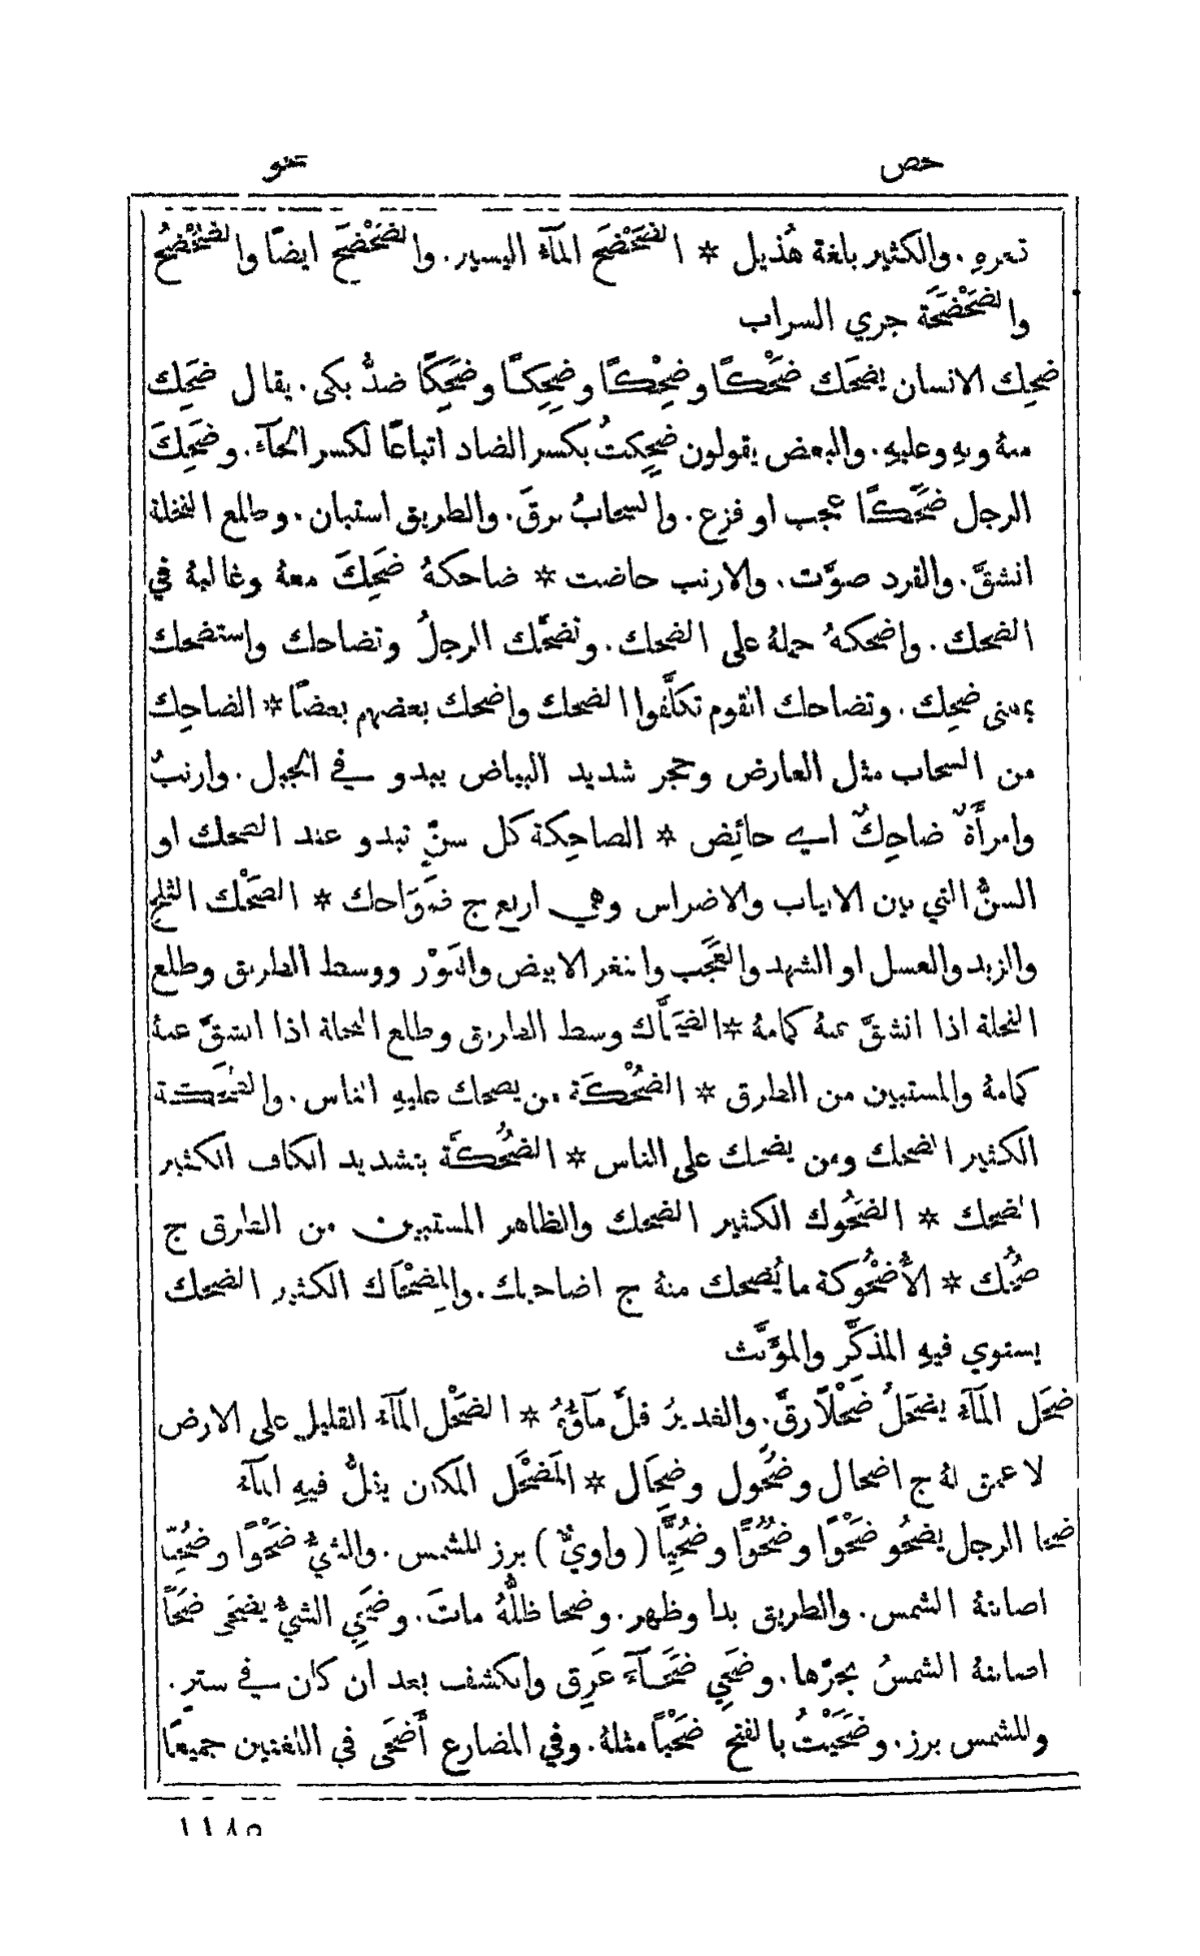 ضحض ضحو
قعره . والكثير بلغة هُذيل * الضَحْضَح المآء اليسير . والضَحْضَح ايضًا والضَحْضُح
والضَحْضَحَة جري السراب
ضحِك الانسان يضحَك ضَحْكًا وضِحْكًا وضِحِكًا وضَحِكًا ضدُّ بكى . يقال ضَحِك
منهُ وبهِ وعليهِ . والبعض يقولون ضِحِكتُ بكسر الضاد اتباعًا لكسر الحآء . وضَحِكَ
الرجل ضَحَكًا عجب او فزع . والسحابُ برقَ . والطريق استبان . وطلع النخلة
انشقَّ . والقرد صوَّت . والارنب حاضت * ضاحكهُ ضَحِكَ معهُ وغالبهُ في
الضحك . واضحكهُ حملهُ على الضحك . وتضحَّك الرجلُ وتضاحك واستضحك
بمعنى ضحِك . وتضاحك القوم تكلَّفوا الضحك واضحك بعضهم بعضًا * الضاحِك
من السحاب مثل العارض وحجر شديد البياض يبدو في الجبل . وارنبٌ
وامرأَةٌ ضاحِكٌ اي حائِض * الضاحِكة كل سنٍّ تبدو عند الضحك او
السنُّ التي بين الانياب والاضراس وهي اربع ج ضَوَاحك * الضَحْك الثلج
والزبد والعسل او الشهد والعَجَب والثغر الابيض والنَوْر ووسط الطريق وطلع
النخلة اذا انشقَّ عنهُ كمامهُ * الضَحَّاك وسط الطريق وطلع النخلة اذا انشقَّ عنهُ
كمامهُ والمستبين من الطرق * الضُحْكَة من يضحك عليهِ الناس . والضُحَكة
الكثير الضحك ومن يضحك على الناس * الضُحُكَّة بتشديد الكاف الكثير
الضحك * الضَحُوك الكثير الضحك والظاهر المستبين من الطرق ج
ضُحُك * الأُضْحُوكة ما يُضحك منهُ ج اضاحيك . والمِضْحَاك الكثير الضحك
يستوي فيهِ المذكَّر والمؤَنَّث
ضحَل المآءُ يضحَلُ ضَحْلًا رقَّ . والغديرُ قلَّ مآؤُهُ * الضَحْل المآء القليل على الارض
لا عمق لهُ ج اضحال وضُحُول وضِحَال * المَضْحَل المكان يقلُّ فيهِ المآء
ضحا الرجل يضحُو ضَحْوًا وضُحُوًّا وضُحِيًّا ( واويٌّ ) برز للشمس . والشيءُ ضَحْوًا وضُحِيًّا
اصابتهُ الشمس . والطريق بدا وظهر . وضحا ظلُّهُ ماتَ . وضَحِي الشيءُ يضحَى ضَحًا
اصابتهُ الشمسُ بحرّها . وضَحِي ضَحَآءً عَرِق وانكشف بعد ان كان في سترٍ .
وللشمس برز . وضَحَيْتُ بالفتح ضَحْيًا مثلهُ . وفي المضارع أَضْحَى في اللغتين جميعًا
١١٨٥